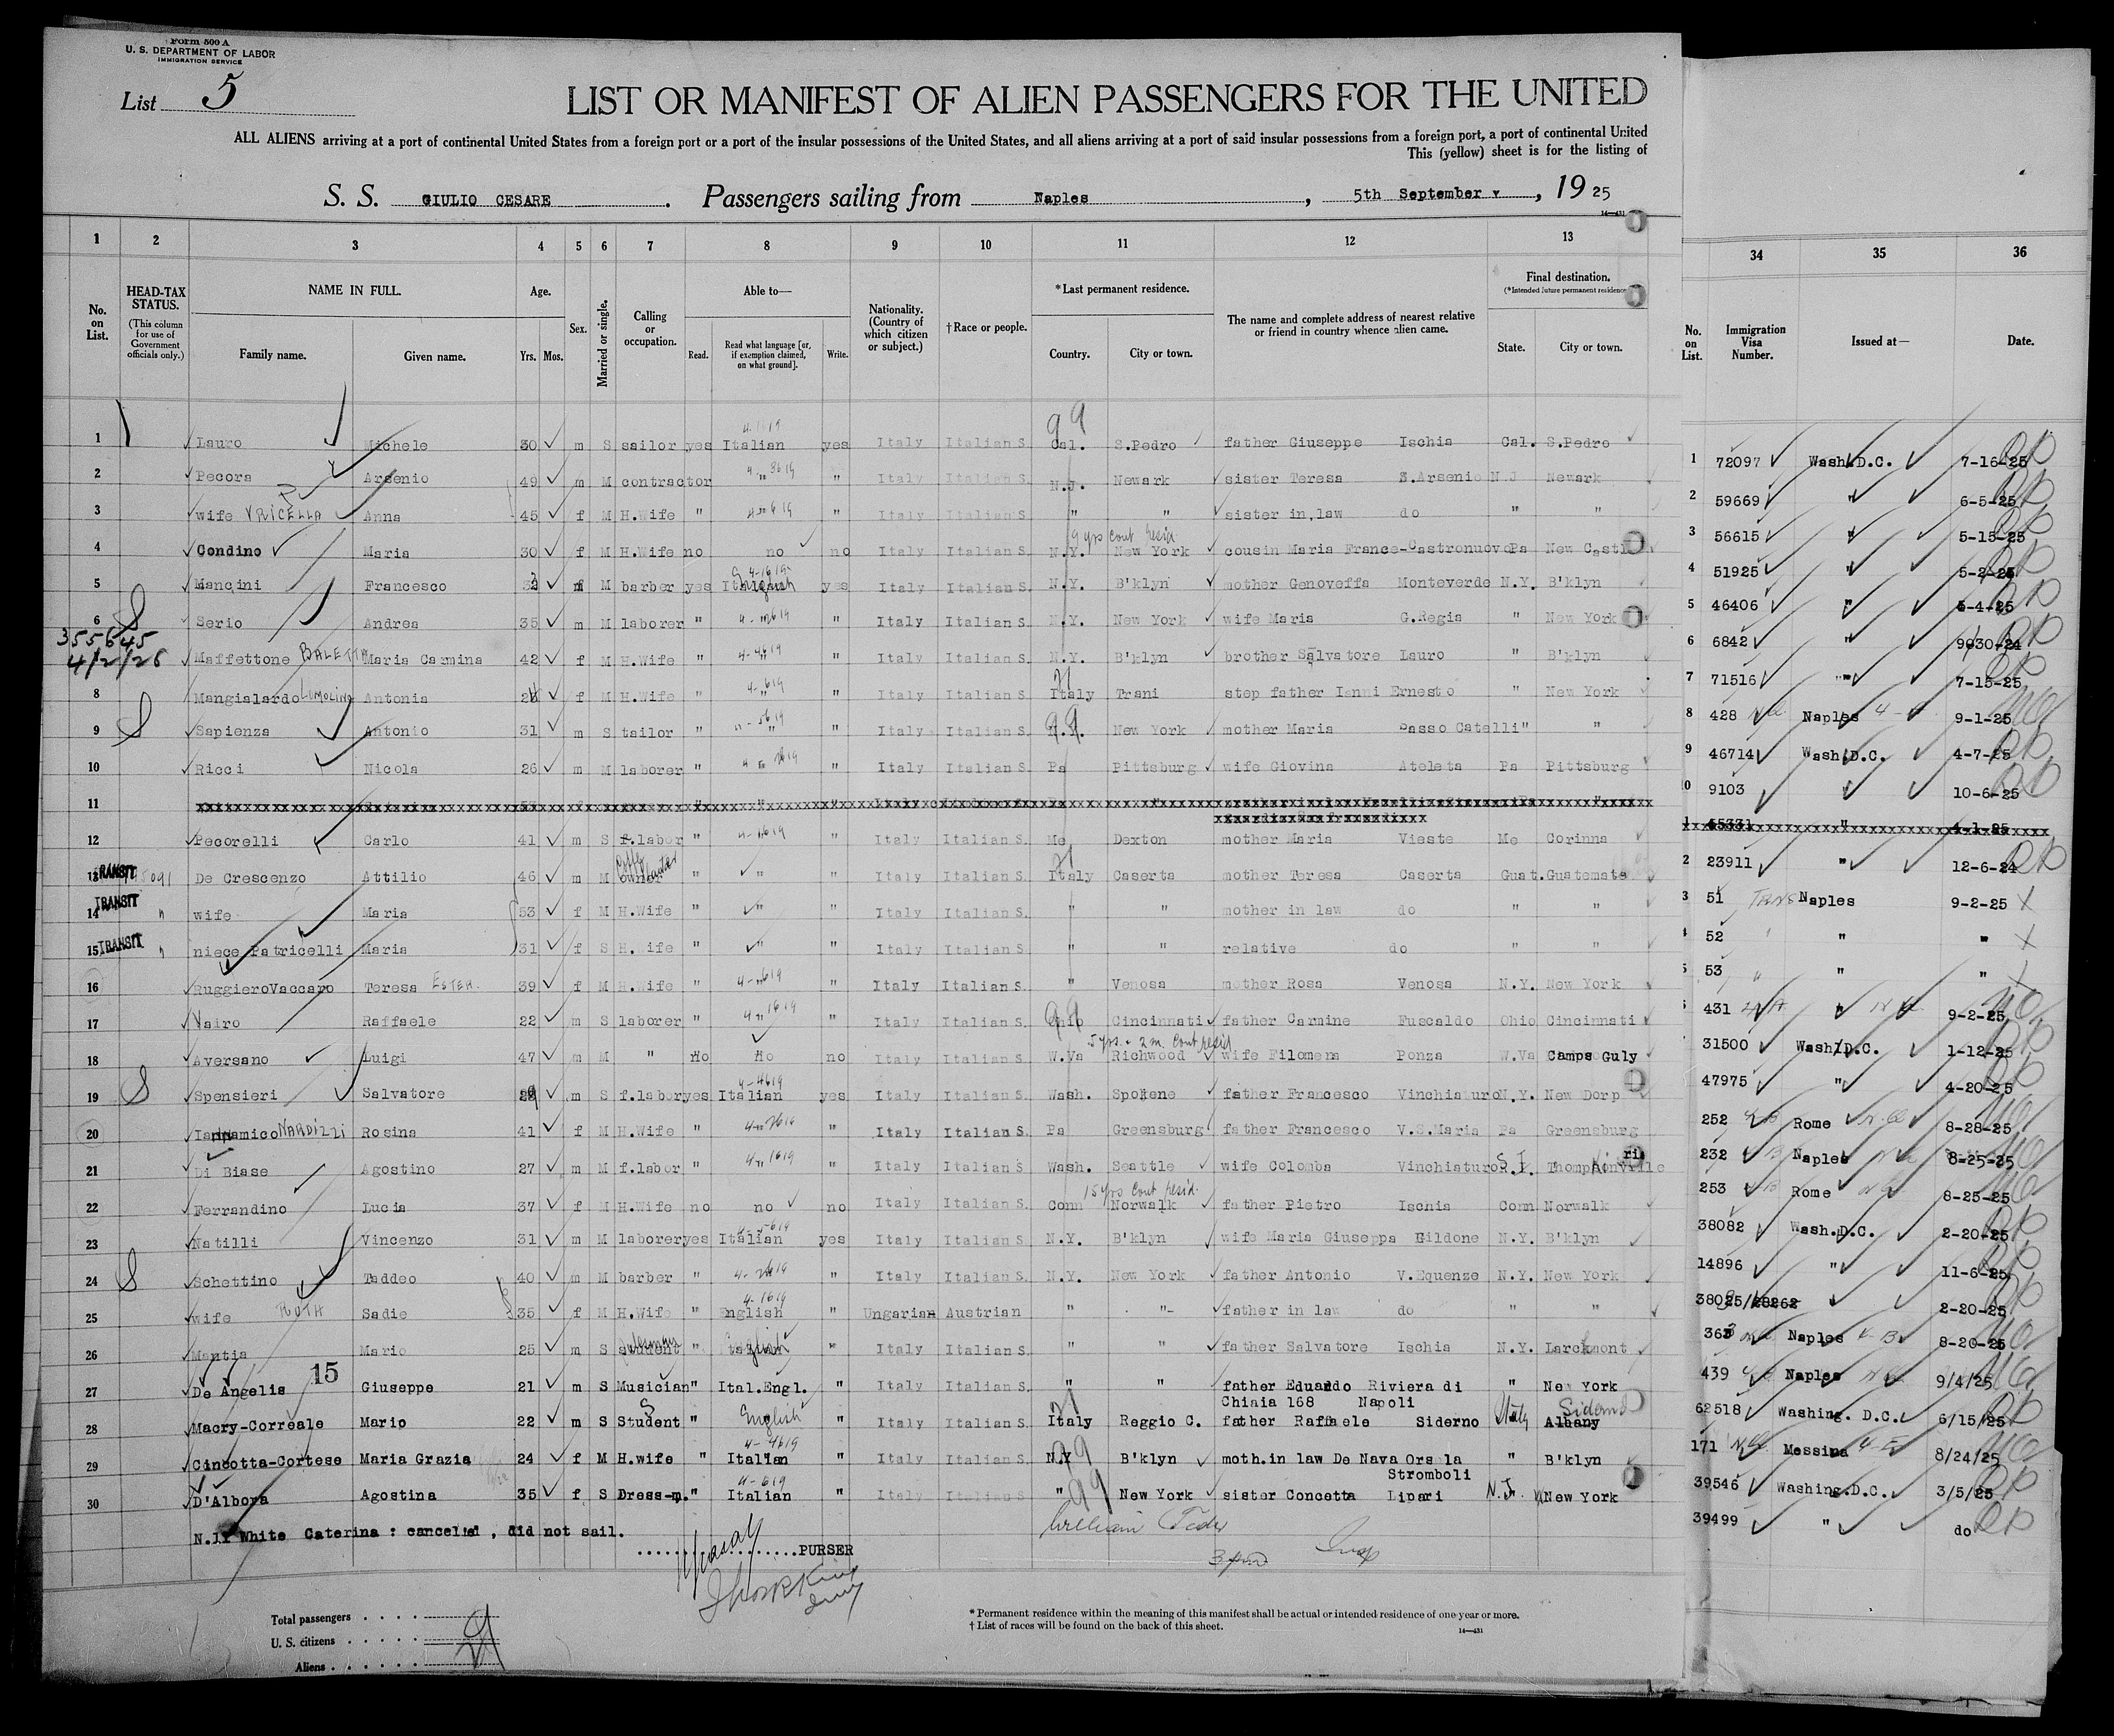 Form 500 A
U. S. DEPARTMENT OF LABOR
IMMIGRATION SERVICE
List 5
LIST OR MANIFEST OF ALIEN PASSENGERS FOR THE UNITED
ALL ALIENS arriving at a port of continental United States from a foreign port or a port of the insular possessions of the United States, and all aliens arriving at a port of said insular possessions from a foreign port, a port of continental United
This (yellow) sheet is for the listing of
S. S. GIULIO CESARE . Passengers sailing from Naples , 5th September , 19 25
14—431
1 2 3 4 5 6 7 8 9 10 11 12 13 34 35 36
No. on List. HEAD-TAX STATUS. (This column for use of Government officials only.) NAME IN FULL. Family name. Given name. Age. Yrs. Mos. Sex. Married or single. Calling or occupation. Able to— Read. Read what language [or, if exemption claimed, on what ground]. Write. Nationality. (Country of which citizen or subject.) † Race or people. * Last permanent residence. Country. City or town. The name and complete address of nearest relative or friend in country whence alien came. Final destination. (* Intended future permanent residence) State. City or town. No. on List. Immigration Visa Number. Issued at— Date.
1 Lauro Michele 30 m S sailor yes Italian yes Italy Italian S. Cal. S.Pedro father Giuseppe Ischia Cal. S.Pedro 1 72097 Wash.D.C. 7-16-25
2 Pecora Arsenio 49 m M contractor " " Italy Italian S. N.J. Newark sister Teresa S.Arsenio N J Newark 2 59669 " 6-5-25
3 wife VRICELLA Anna 45 f M H.Wife " " Italy Italian S. " " sister in law do " " 3 56615 " 5-15-25
9 yrs cont resid.
4 Gondino Maria 30 f M H.Wife no no no Italy Italian S. N.Y. New York cousin Maria France-Castronuovo Pa New Castl 4 51925 " 5-2-25
5 Mancini Francesco M barber yes yes Italy Italian S. N.Y. B'klyn mother Genoveffa Monteverde N.Y. B'klyn 5 46406 " 5-4-25
6 Serio Andrea 35 m M laborer " " Italy Italian S. N.Y. New York wife Maria G.Regis " New York 6 6842 "
355645
4/2/28
Maffettone BALETTA Maria Carmina 42 f M H.Wife " " " Italy Italian S. N.Y. B'klyn brother Salvatore Lauro " B'klyn 7 71516 " 7-15-25
8 Mangialardo LOMOLINO Antonia f M H.Wife " " " Italy Italian S. Italy Trani step father Ianni Ernesto " New York 8 428 Naples 9-1-25
9 Sapienza Antonio 31 m S tailor " " " Italy Italian S. New York mother Maria Basso Catelli " " 9 46714 Wash.D.C. 4-7-25
10 Ricci Nicola 26 m M laborer " " Italy Italian S. Pa Pittsburg wife Giovina Ateleta Pa Pittsburg 9103 " 10-6-25
11 " " 4-1-25
12 Pecorelli Carlo 41 m S f.labor " " Italy Italian S. Me Dexton mother Maria Vieste Me Corinna 2 23911 " 12-6-24
TRANSIT De Crescenzo Attilio 46 m M " " " Italy Italian S. Italy Caserta mother Teresa Caserta Guat. Guatemata 3 51 Naples 9-2-25
14 TRANSIT wife Maria 53 f M H.Wife " " " Italy Italian S. " " mother in law do " " 52 " "
15 TRANSIT niece Patricelli Maria 31 f S H.Wife " " " Italy Italian S. " " relative do " " 5 53 " "
16 RuggieroVaccaro Teresa ESTER. 39 f M H.Wife " " Italy Italian S. " Venosa mother Rosa Venosa N.Y. New York 431 " 9-2-25
17 Vairo Raffaele 22 m S laborer " " Italy Italian S. Ohio Cincinnati father Carmine Fuscaldo Ohio Cincinnati 31500 Wash.D.C. 1-12-25
5 yrs. + 2 m. cont resid
18 Aversano Luigi 47 m M " no no no Italy Italian S. W.Va Richwood wife Filomena Ponza W.Va Camps Guly 47975 " 4-20-25
19 Spensieri Salvatore m S f.labor yes Italian yes Italy Italian S. Wash. Spokene father Francesco Vinchiaturo N.Y. New Dorp 252 Rome 8-28-25
20 Iannamico NARDIZZI Rosina 41 f M H.Wife " " Italy Italian S. Pa Greensburg father Francesco V.S.Maria Pa Greensburg 232 Naples 8-25-25
21 Di Biase Agostino 27 m M f.labor " " Italy Italian S. Wash. Seattle wife Colomba Vinchiaturo Thompsonville 253 Rome 8-25-25
15 yrs cont resid.
22 Ferrandino Lucia 37 f M H.Wife no no no Italy Italian S. Conn Norwalk father Pietro Ischia Conn Norwalk 38082 Wash.D.C. 2-20-25
23 Natilli Vincenzo 31 m M laborer yes Italian yes Italy Italian S. N.Y. B'klyn wife Maria Giuseppa Gildone N.Y. B'klyn 14896 " 11-6-25
24 Schettino Taddeo 40 m M barber " " Italy Italian S. N.Y. New York father Antonio V.Equense N.Y. New York 38025/28262 2-20-25
25 wife RUTH Sadie 35 f M H.Wife " English " Ungarian Austrian " " father in law do " " 363 Naples 8-20-25
26 Mantia Mario 25 m S student " " Italy Italian S. " " father Salvatore Ischia N.Y. Larchmont 439 Naples 9/4/25
15
27 De Angelis Giuseppe 21 m S Musician " Ital.Engl. " Italy Italian S. " " father Eduardo Riviera di " New York 62518 Washing. D.C. 6/15/25
Chiaia 168 Napoli
28 Macry-Correale Mario 22 m S Student " English " Italy Italian S. Italy Reggio C. father Raffaele Siderno Italy Albany Siderno 171 Messina 8/24/25
29 Cincotta-Cortese Maria Grazia 24 f M H.wife " Italian " Italy Italian S. N.Y B'klyn moth.in law De Nava Orsola " B'klyn 39546 Washing.D.C. 3/5/25
Stromboli
30 D'Albora Agostina 35 f S Dress-m. " Italian " Italy Italian S. " New York sister Concetta Lipari N.J. New York 39499 " do
N.11 White Caterina : canceled , did not sail.
PURSER
Total passengers
U. S. citizens
Aliens
* Permanent residence within the meaning of this manifest shall be actual or intended residence of one year or more.
† List of races will be found on the back of this sheet.
14—431